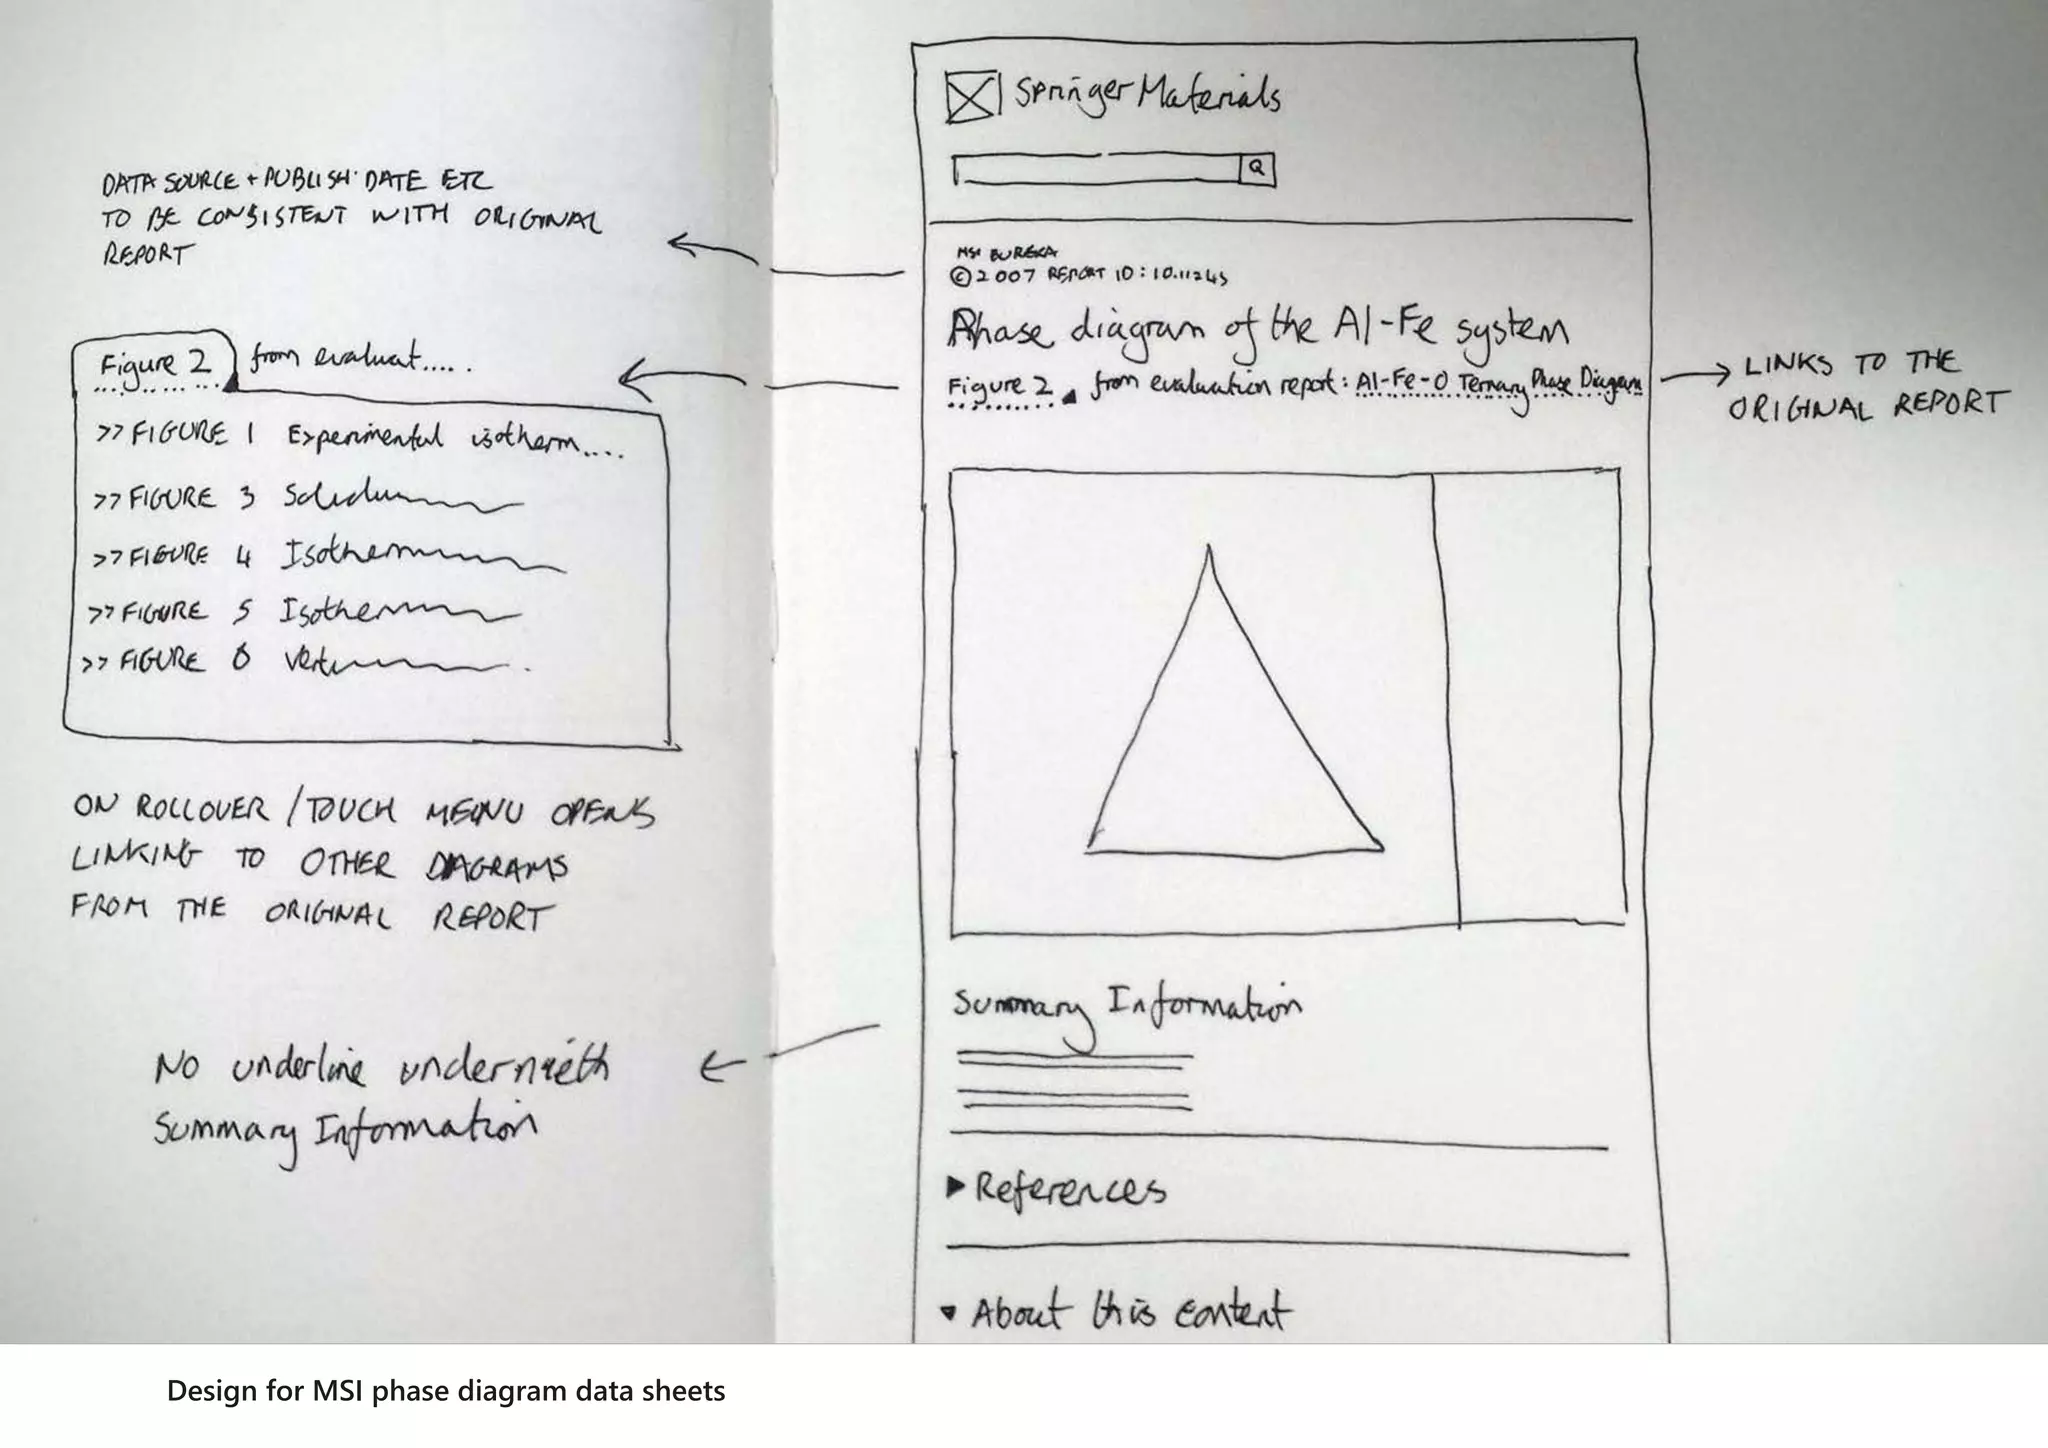 SpringerMaterials
Q
DATA SOURCE + PUBLISH DATE ETC
TO BE CONSISTENT WITH ORIGINAL
REPORT
MSI EUREKA
© 2007 REPORT ID: 10.11245
Phase diagram of the Al-Fe system
Figure 2 from evaluation report: Al-Fe-O Ternary Phase Diagram
LINKS TO THE
ORIGINAL REPORT
Figure 2 from evaluat.....
>> FIGURE 1 Experimental isotherm....
>> FIGURE 3
>> FIGURE 4 Isotherm
>> FIGURE 5 Isotherm
>> FIGURE 6
ON ROLLOVER / TOUCH MENU OPENS
LINKING TO OTHER DIAGRAMS
FROM THE ORIGINAL REPORT
Summary Information
No underline underneath
Summary Information
References
About this content
Design for MSI phase diagram data sheets